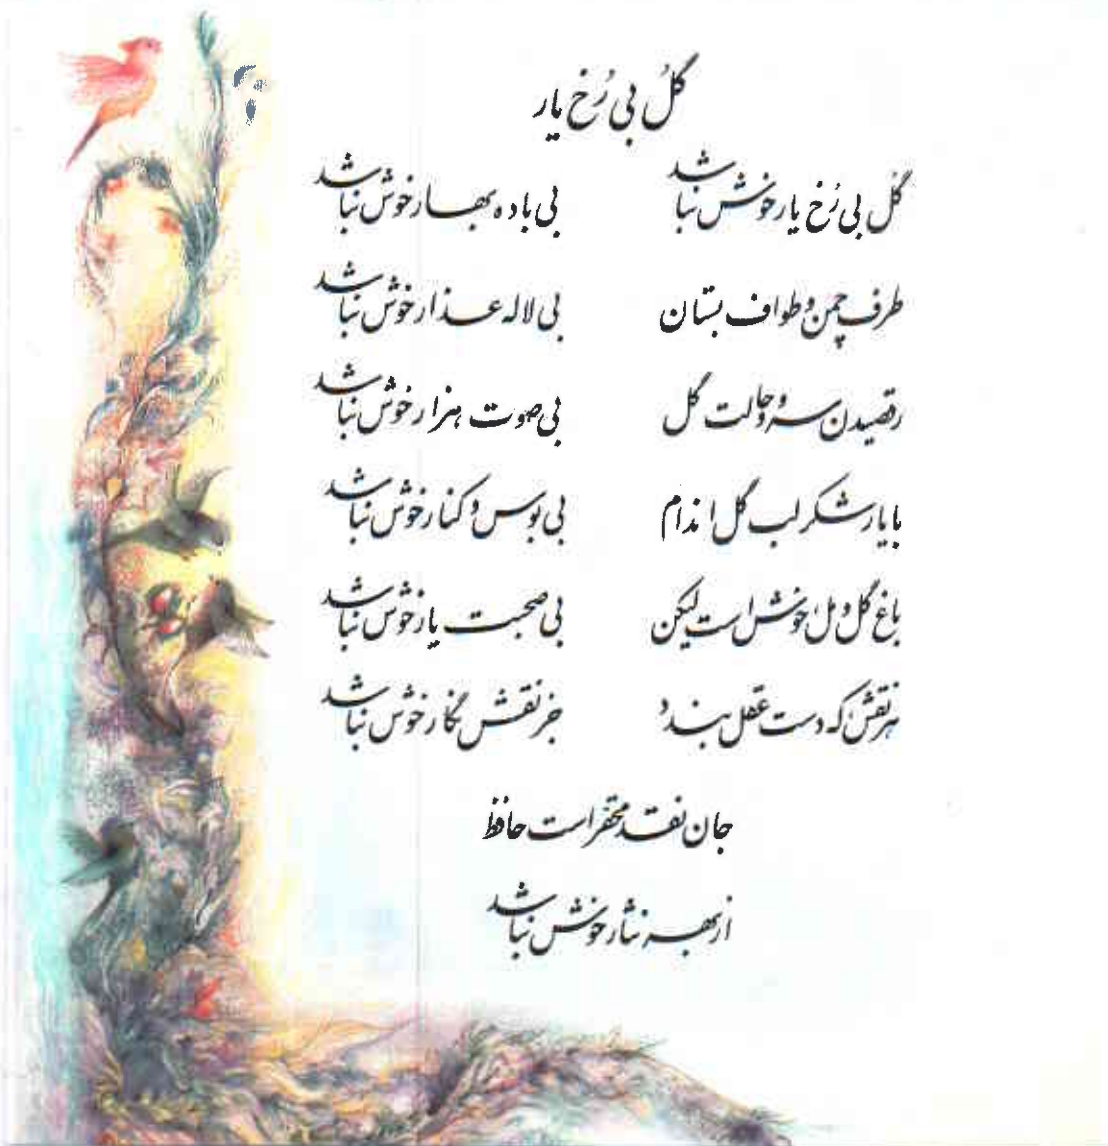 گلُ بی رُخ یار
گل بی رُخ یار خوش نباشد بی باده بهار خوش نباشد
طرف چمن و طواف بستان بی لاله عذار خوش نباشد
رقصیدن سرو و حالت گل بی صوت هزار خوش نباشد
با یار شکر لب گل اندام بی بوس و کنار خوش نباشد
باغ گل و مل خوش است لیکن بی صحبت یار خوش نباشد
هر نقش که دست عقل بندد جز نقش نگار خوش نباشد
جان نقد محقّر است حافظ
از بهر نثار خوش نباشد